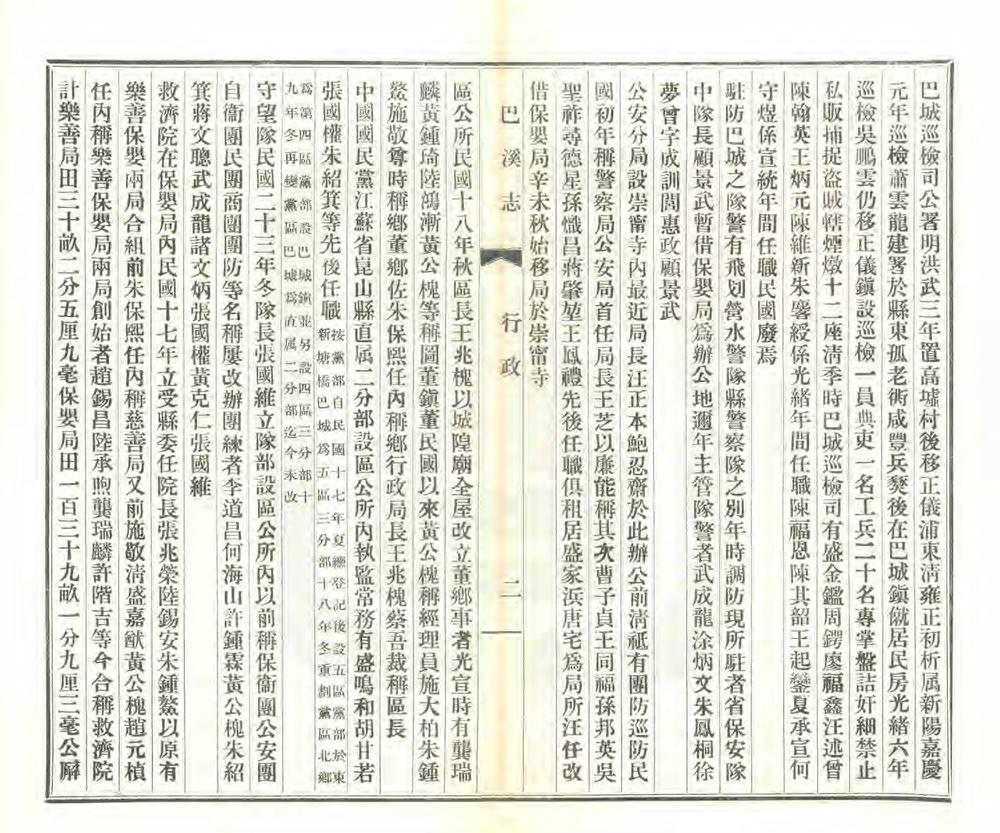 巴城巡檢司公署明洪武三年置高墟村後移正儀浦東淸雍正初析属新陽嘉慶
元年巡檢蕭雲龍建署於縣東孤老術咸豐兵燹後在巴城鎭僦居民房光緒六年
巡檢吳鵬雲仍移正儀鎭設巡檢一員典吏一名工兵二十名專掌盤詰奸細禁止
私販捕捉盜賊轄煙燉十二座淸季時巴城巡檢司有盛金鑑周鍔廖福鑫汪述曾
陳翰英王炳元陳維新朱馨綬係光緒年間任職陳福恩陳其韶王起鑾夏承宣何
守煜係宣統年間任職民國廢焉
駐防巴城之隊警有飛划營水警隊縣警察隊之別年時調防現所駐者省保安隊
中隊長顧景武暫借保嬰局爲辦公地邇年主管隊警者武成龍涂炳文朱鳳桐徐
夢曾字成訓閻惠政顧景武
公安分局設崇甯寺內最近局長汪正本鮑忍齋於此辦公前淸祗有團防巡防民
國初年稱警察局公安局首任局長王芝以廉能稱其次曹子貞王同福孫邦英吳
聖祚尋德星孫熾昌蔣肇堃王鳳禮先後任職俱租居盛家浜唐宅爲局所汪任改
借保嬰局辛未秋始移局於崇甯寺
巴溪志
行政
二
區公所民國十八年秋區長王兆槐以城隍廟全屋改立董鄉事者光宣時有龔瑞
麟黃鍾琦陸鴻漸黃公槐等稱圖董鎭董民國以來黃公槐稱經理員施大柏朱鍾
鰲施敬尊時稱鄉董鄉佐朱保熙任內稱鄉行政局長王兆槐蔡吾裁稱區長
中國國民黨江蘇省崑山縣直属二分部設區公所內執監常務有盛鳴和胡甘若
張國權朱紹箕等先後任職
按黨部自民國十七年夏總登記後設五區黨部於東
新塘橋巴城爲五區三分部十八年冬重劃黨區北鄉
爲第四區黨部設巴城鎭並另設四區三分部十
九年冬再變黨區巴城爲直属二分部迄今未改
守望隊民國二十三年冬隊長張國維立隊部設區公所內以前稱保衞團公安團
自衞團民團商團團防等名稱屢改辦團練者李道昌何海山許鍾霖黃公槐朱紹
箕蔣文聰武成龍諸文炳張國權黃克仁張國維
救濟院在保嬰局內民國十七年立受縣委任院長張兆榮陸錫安朱鍾鰲以原有
樂善保嬰兩局合組前朱保熙任內稱慈善局又前施敬淸盛嘉猷黃公槐趙元楨
任內稱樂善保嬰局兩局創始者趙錫昌陸承煦龔瑞麟許階吉等今合稱救濟院
計樂善局田三十畝二分五厘九毫保嬰局田一百三十九畝一分九厘三毫公廨